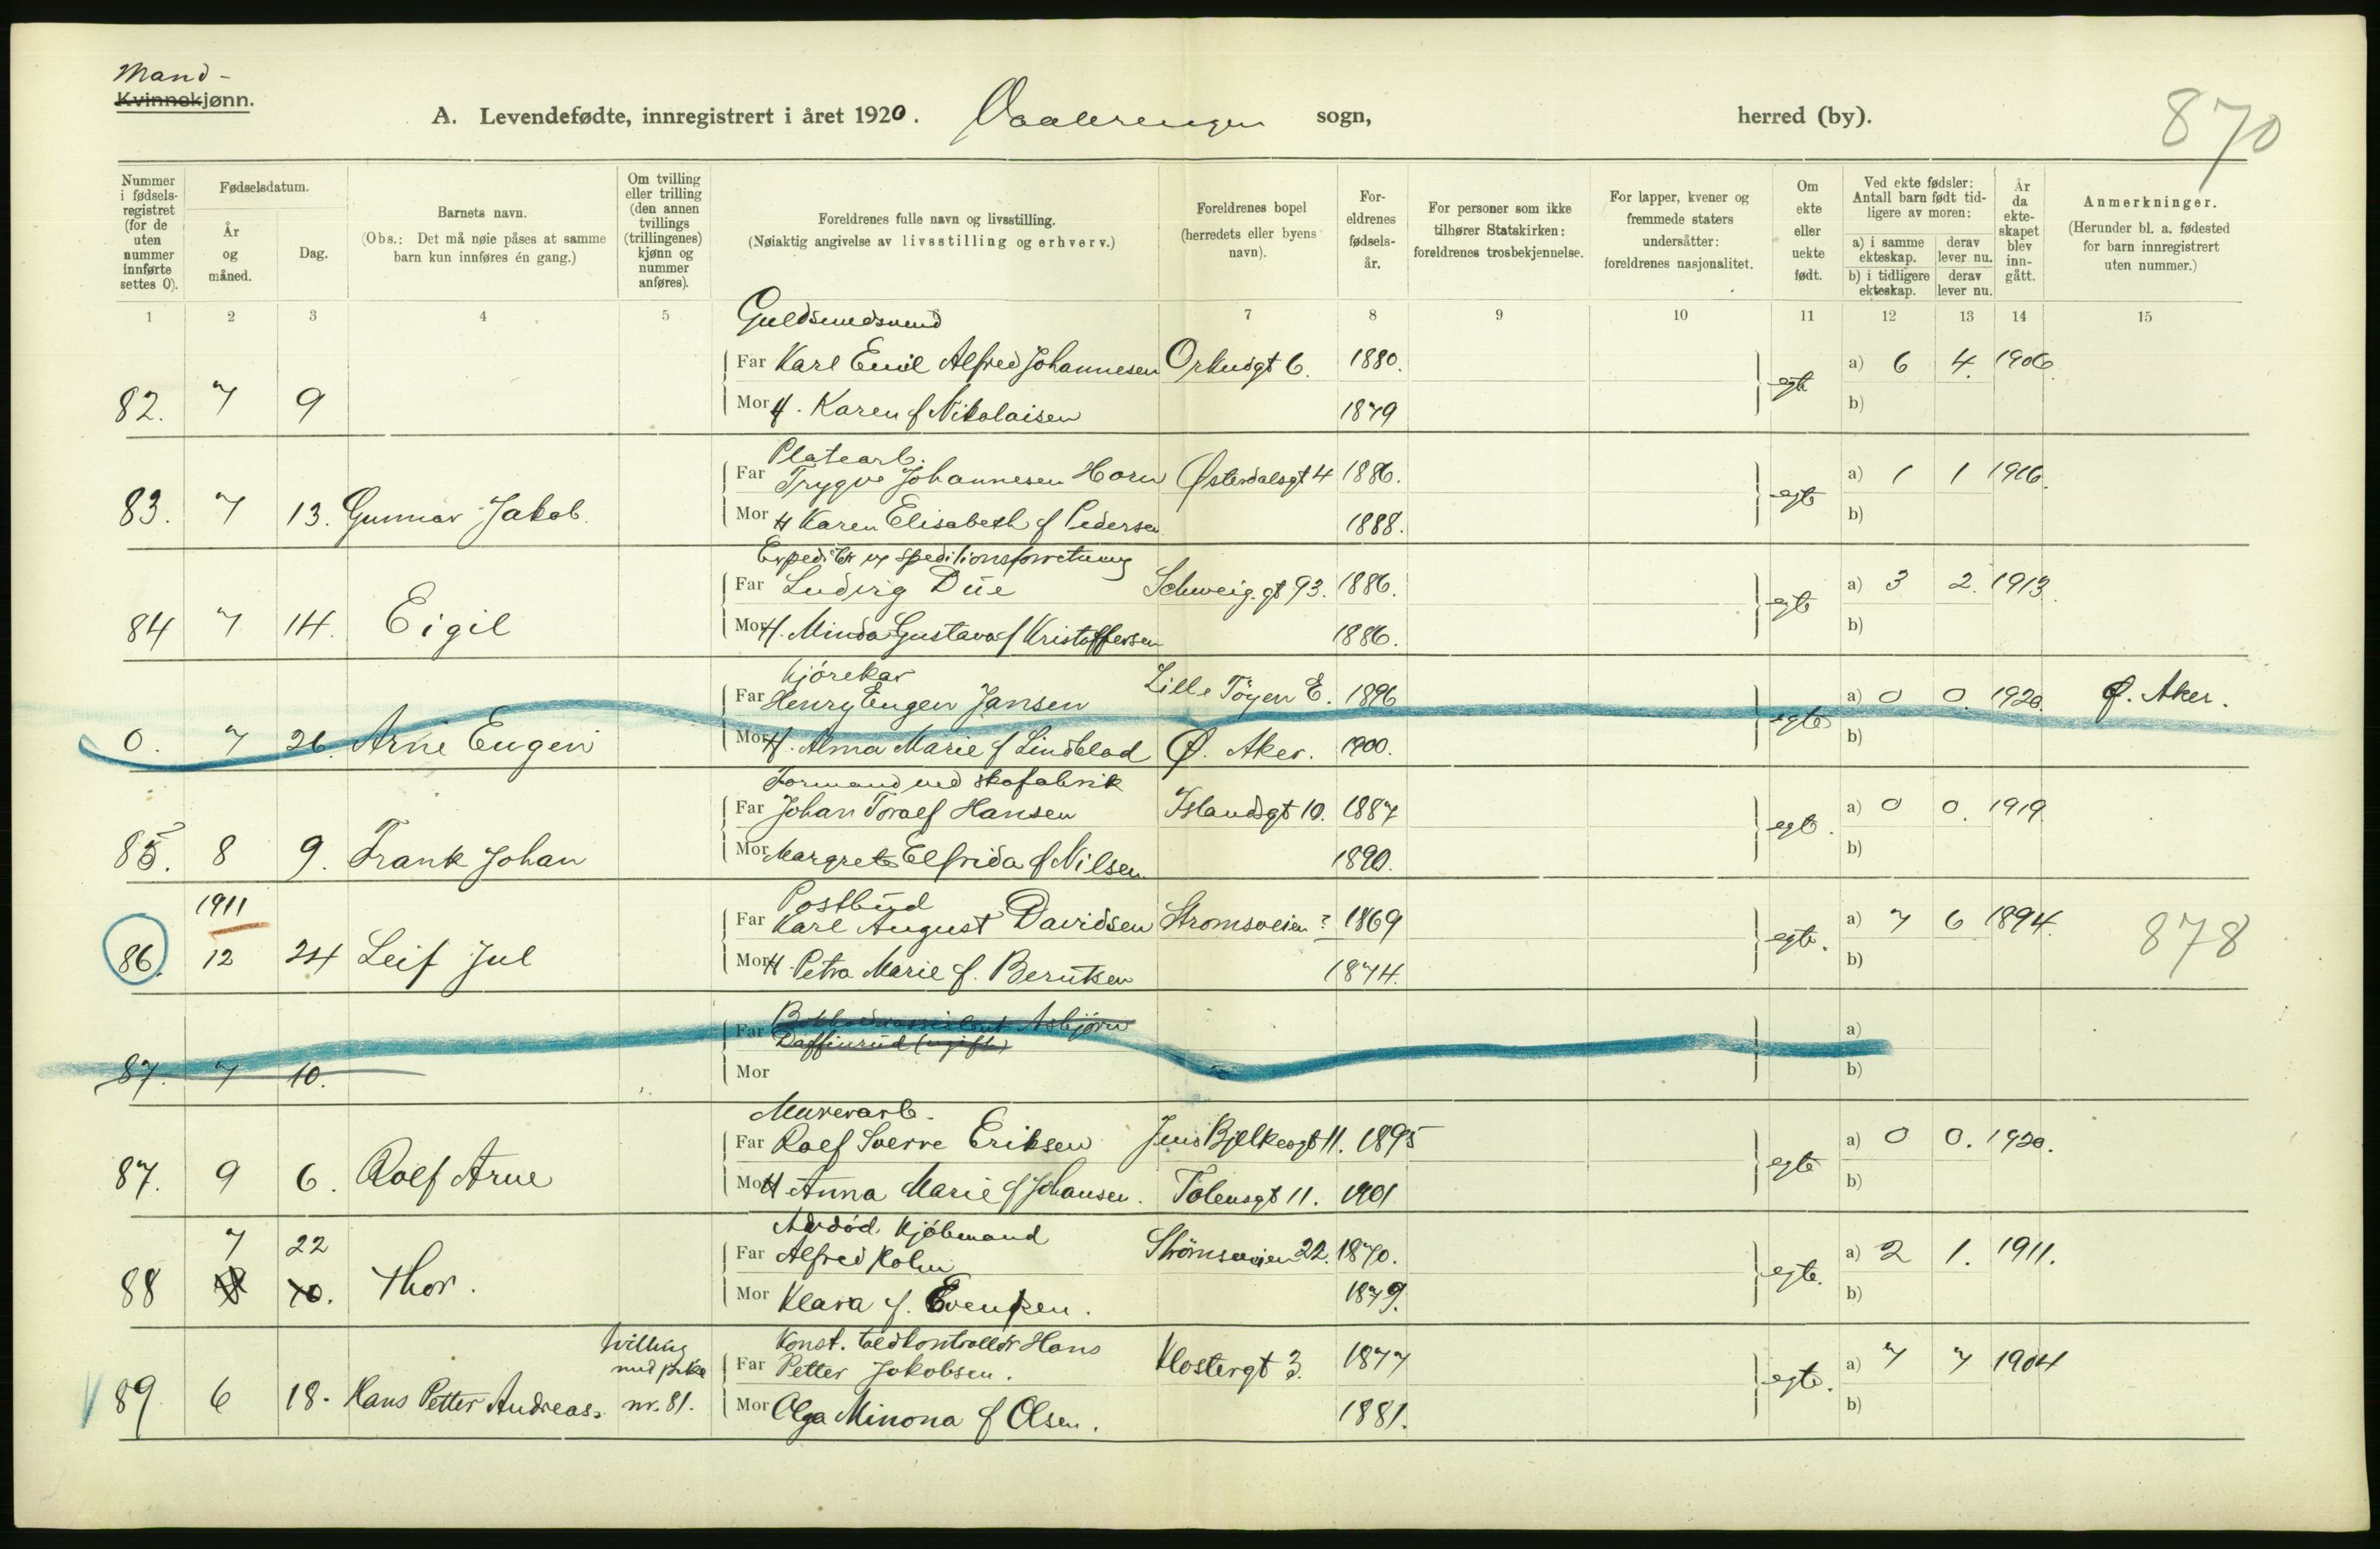 Mand-
Kvinnekjønn.
A. Levendefødte, innregistrert i året 1920. Vaalerengen sogn, herred (by). 870
Nummer i fødselsregistret (for de uten nummer innførte settes 0).
Fødselsdatum.
År og måned.
Dag.
Barnets navn.
(Obs.: Det må nøie påses at samme barn kun innføres én gang.)
Om tvilling eller trilling (den annen tvillings (trillingenes) kjønn og nummer anføres).
Foreldrenes fulle navn og livsstilling.
(Nøiaktig angivelse av livsstilling og erhverv.)
Foreldrenes bopel (herredets eller byens navn).
Foreldrenes fødselsår.
For personer som ikke tilhører Statskirken: foreldrenes trosbekjennelse.
For lapper, kvener og fremmede staters undersåtter: foreldrenes nasjonalitet.
Om ekte eller uekte født.
Ved ekte fødsler: Antall barn født tidligere av moren:
a) i samme ekteskap. derav lever nu.
b) i tidligere ekteskap. derav lever nu.
År da ekteskapet blev inngått.
Anmerkninger.
(Herunder bl. a. fødested for barn innregistrert uten nummer.)
1 2 3 4 5 7 8 9 10 11 12 13 14 15
Guldsmedsvend
Far Karl Emil Alfred Johannesen Orknøigt 6. 1880. a) 6 4. 1906.
82. 7 9 Mor H. Karen f Nikolaisen 1879 egte b)
Platearb.
Far Trygve Johannesen Horn Østerdalsgt 4 1886. a) 1 1 1916.
83. 7 13. Gunnar Jakob. Mor H Karen Elisabeth f Pedersen 1888. egte b)
Expeditør v/ speditionsforretning
Far Ludvig Due Schweig.gt 93. 1886. a) 3 2. 1913.
84 7 14. Eigil Mor H. Minda Gustava f Kristoffersen 1886. egte b)
Kjørekar
Far Henry Eugen Jansen Lille Töyen E. 1896 a) 0 0. 1920. Ø. Aker.
0. 7 26. Arne Eugen Mor H. Alma Marie f Lindblad Ø. Aker. 1900. egte b)
Formand ved skofabrik
Far Johan Toralf Hansen Islandsgt 10. 1887 a) 0 0. 1919
85. 8 9. Frank Johan Mor Margrete Elfrida f Nilsen 1890. egte. b)
1911 Postbud
Far Karl August Davidsen Strömsveien ? 1869 a) 7 6 1894. 878
86. 12 24 Leif Jul Mor H Petra Marie f. Berntsen 1874. egte. b)
Far Asbjørn a)
87. 7 10. Mor b)
Murerarb.
Far Rolf Sverre Eriksen Jens Bjelkesgt 11. 1895 a) 0 0. 1920.
87. 9 6. Rolf Arne Mor H Anna Marie f Johansen. Töiensgt 11. 1901 egte b)
7 22 Avdöd. Kjöbmand
Far Alfred Holm Strömsveien 22. 1870. a) 2 1. 1911.
88 10. Thor. Mor Klara f. Evensen. 1879. egte. b)
tvilling Konst. toldkontrollör Hans
med pike Far Petter Jakobsen. Klostergt 3. 1877 a) 7 7 1904
89 6 18. Hans Petter Andreas. nr. 81. Mor Olga Minona f Olsen. 1881. egte. b)